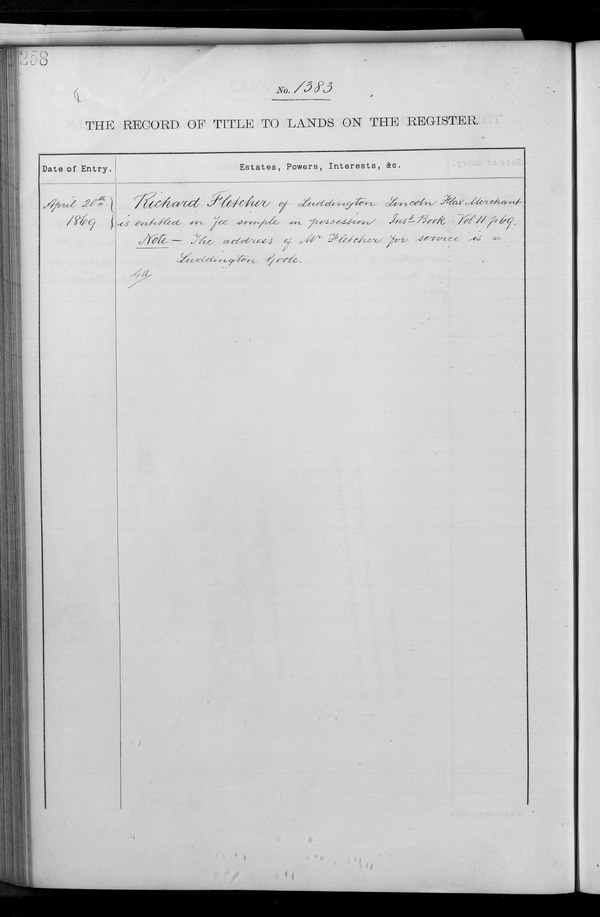 258
No. 1383
THE RECORD OF TITLE TO LANDS ON THE REGISTER.
Date of Entry.
Estates, Powers, Interests, &c.
April 20th 1869
Richard Fletcher of Luddington Lincoln Flax Merchant
is entitled in fee simple in possession Inst. Book Vol 11 p 69.
Note – The address of Mr Fletcher for service is –
Luddington Goole.